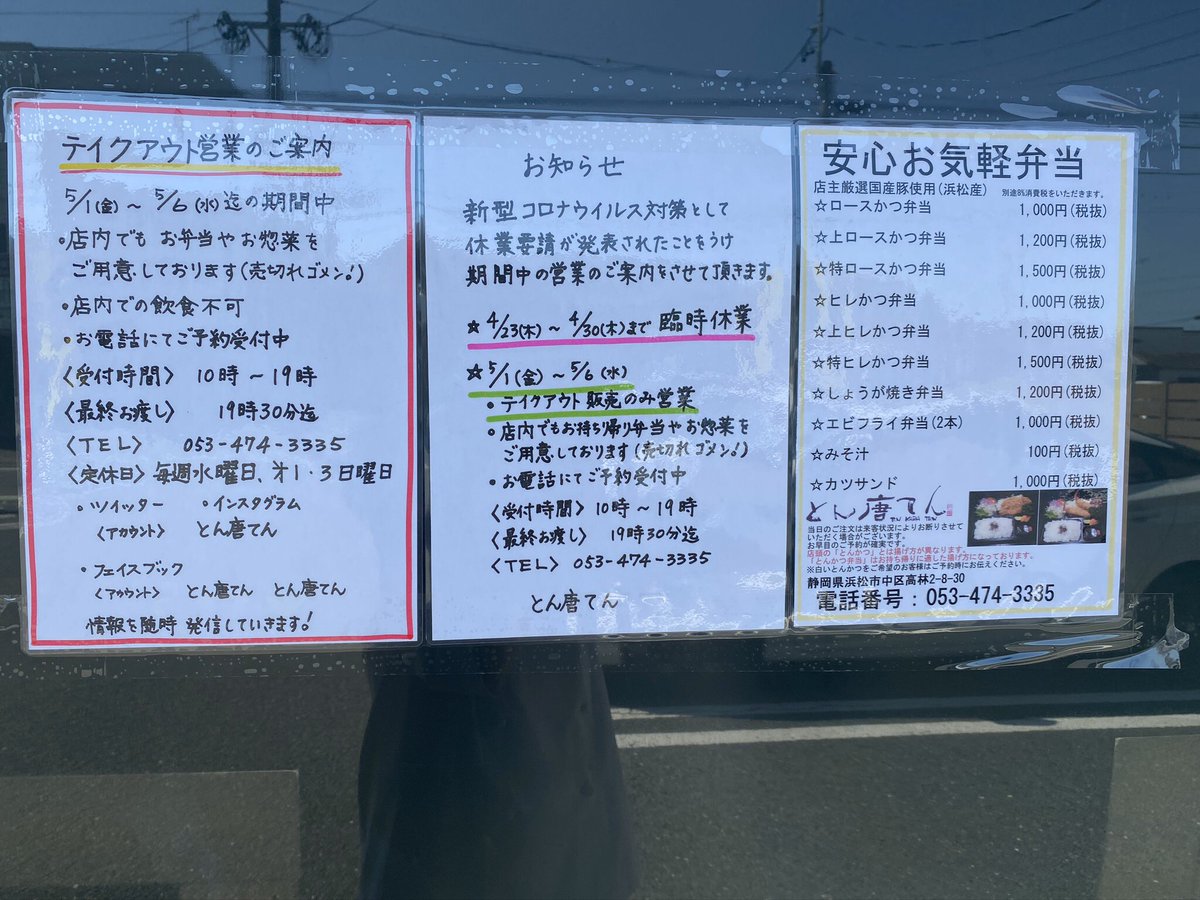 テイクアウト営業のご案内
5/1(金)~5/6(水)迄の期間中
・店内でも お弁当やお惣菜を
ご用意しております(売切れゴメン!)
・店内での飲食不可
・お電話にてご予約受付中
〈受付時間〉 10時~19時
〈最終お渡し〉 19時30分迄
〈TEL〉 053-474-3335
〈定休日〉毎週水曜日、才1・3日曜日
・ツイッター ・インスタグラム
〈アカウント〉 とん唐てん
・フェイスブック
〈アカウント〉 とん唐てん とん唐てん
情報を随時 発信していきます!
お知らせ
新型コロナウイルス対策として
休業要請が発表されたことをうけ
期間中の営業のご案内をさせて頂きます。
★4/23(木)~4/30(木)まで 臨時休業
★5/1(金)~5/6(水)
・テイクアウト販売のみ営業
・店内でもお持ち帰り弁当やお惣菜を
ご用意しております(売切れゴメン!)
・お電話にてご予約受付中
〈受付時間〉10時~19時
〈最終お渡し〉 19時30分迄
〈TEL〉053-474-3335
とん唐てん
安心お気軽弁当
店主厳選国産豚使用(浜松産) 別途8%消費税をいただきます。
☆ロースかつ弁当 1,000円(税抜)
☆上ロースかつ弁当 1,200円(税抜)
☆特ロースかつ弁当 1,500円(税抜)
☆ヒレかつ弁当 1,000円(税抜)
☆上ヒレかつ弁当 1,200円(税抜)
☆特ヒレかつ弁当 1,500円(税抜)
☆しょうが焼き弁当 1,200円(税抜)
☆エビフライ弁当(2本) 1,000円(税抜)
☆みそ汁 100円(税抜)
☆カツサンド 1,000円(税抜)
とん唐てん
当日のご注文は来客状況によりお断りさせて
いただく場合がございます。
お早目のご予約が確実です。
店頭の「とんかつ」とは揚げ方が異なります。
「とんかつ弁当」はお持ち帰りに適した揚げ方になっております。
※白いとんかつをご希望のお客様はご予約時にお伝えください。
静岡県浜松市中区高林2-8-30
電話番号:053-474-3335